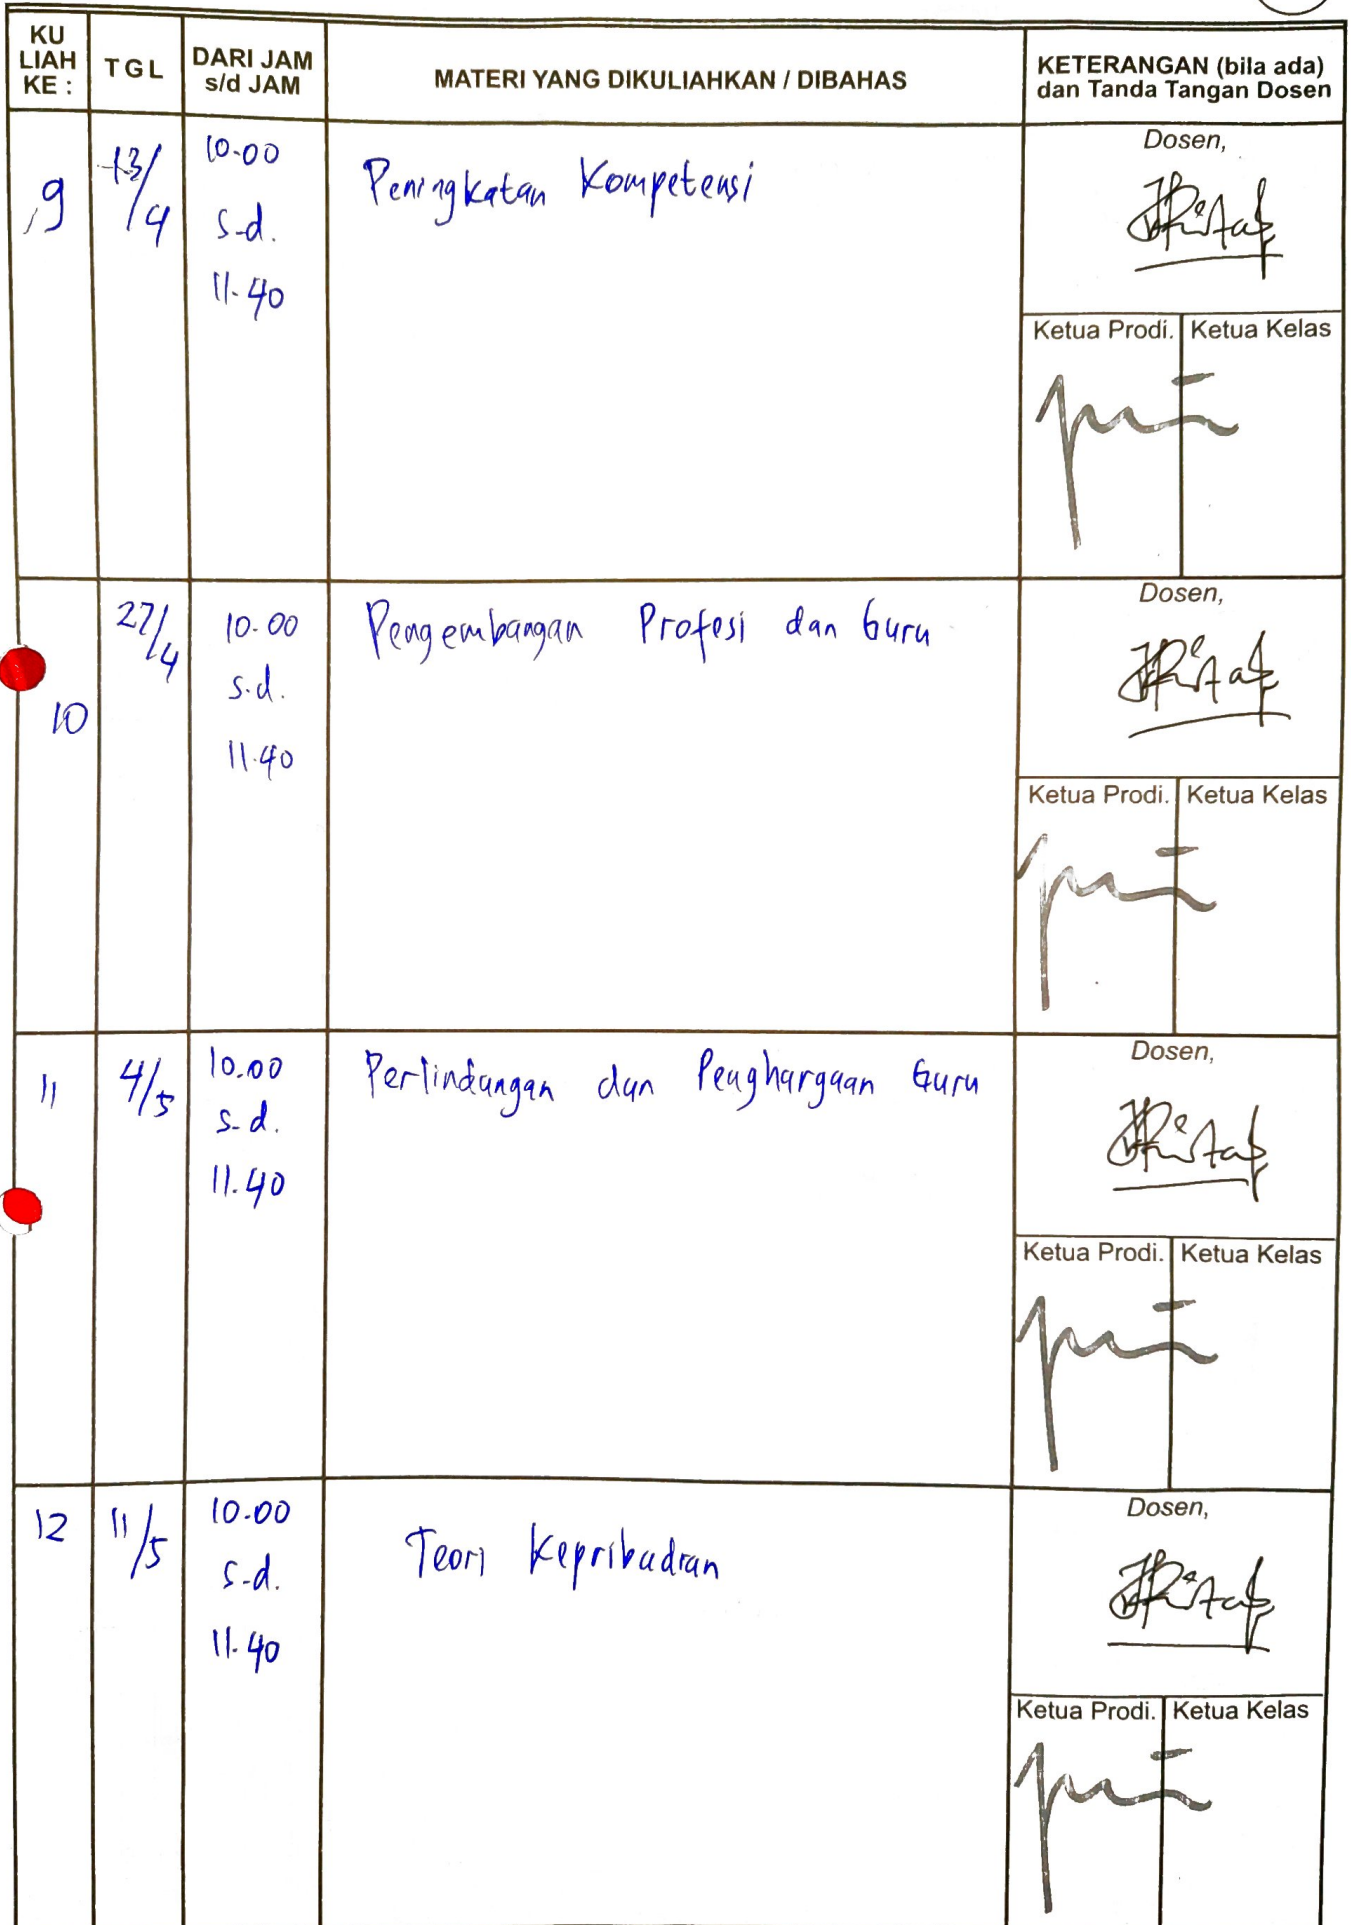 KU LIAH KE : TGL DARI JAM s/d JAM MATERI YANG DIKULIAHKAN / DIBAHAS KETERANGAN (bila ada) dan Tanda Tangan Dosen
9 13/4 10.00 Peningkatan Kompetensi Dosen,
s.d.
11.40
Ketua Prodi. Ketua Kelas
10 27/4 10.00 Pengembangan Profesi dan Guru Dosen,
s.d.
11.40
Ketua Prodi. Ketua Kelas
11 4/5 10.00 Perlindungan dan Penghargaan Guru Dosen,
s.d.
11.40
Ketua Prodi. Ketua Kelas
12 11/5 10.00 Teori Kepribadian Dosen,
s.d.
11.40
Ketua Prodi. Ketua Kelas